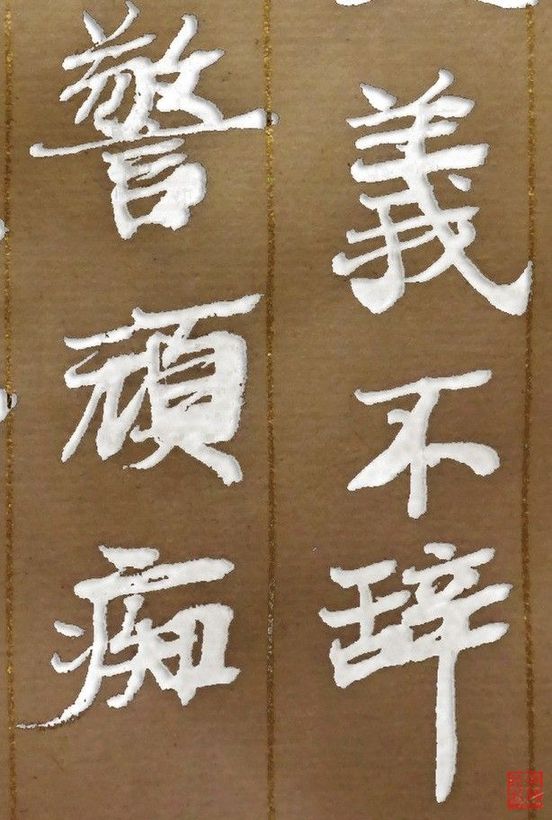 義不辞
警頑痴